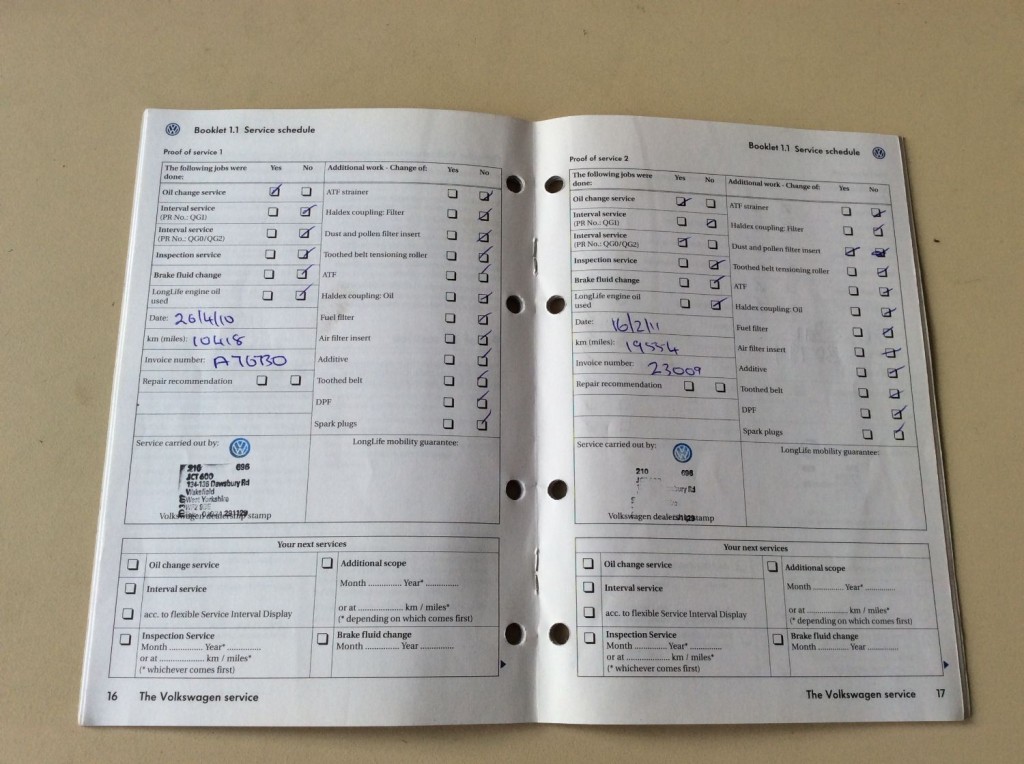 Booklet 1.1 Service schedule
Proof of service 1
The following jobs were done: Yes No
Additional work - Change of: Yes No
Oil change service
ATF strainer
Interval service
(PR No.: QG1)
Haldex coupling: Filter
Interval service
(PR No.: QG0/QG2)
Dust and pollen filter insert
Inspection service
Toothed belt tensioning roller
Brake fluid change
ATF
LongLife engine oil
used
Haldex coupling: Oil
Date: 26/4/10
Fuel filter
km (miles): 10418
Air filter insert
Invoice number:
Additive
Repair recommendation
Toothed belt
DPF
Spark plugs
Service carried out by:
LongLife mobility guarantee:
210 696
JCT 600
134-136 Dewsbury Rd
Wakefield
West Yorkshire
Volkswagen dealership stamp
Your next services
Oil change service
Additional scope
Interval service
Month .............. Year* ..............
acc. to flexible Service Interval Display
or at .................... km / miles*
(* depending on which comes first)
Inspection Service
Month .............. Year* ..............
or at .................... km / miles*
(* whichever comes first)
Brake fluid change
Month .............. Year ..............
16 The Volkswagen service
Booklet 1.1 Service schedule
Proof of service 2
The following jobs were done: Yes No
Additional work - Change of: Yes No
Oil change service
ATF strainer
Interval service
(PR No.: QG1)
Haldex coupling: Filter
Interval service
(PR No.: QG0/QG2)
Dust and pollen filter insert
Inspection service
Toothed belt tensioning roller
Brake fluid change
ATF
LongLife engine oil
used
Haldex coupling: Oil
Date: 16/2/11
Fuel filter
km (miles): 19554
Air filter insert
Invoice number: 23009
Additive
Repair recommendation
Toothed belt
DPF
Spark plugs
Service carried out by:
LongLife mobility guarantee:
210 696
Volkswagen dealership stamp
Your next services
Oil change service
Additional scope
Interval service
Month .............. Year* ..............
acc. to flexible Service Interval Display
or at .................... km / miles*
(* depending on which comes first)
Inspection Service
Month .............. Year* ..............
or at .................... km / miles*
(* whichever comes first)
Brake fluid change
Month .............. Year ..............
The Volkswagen service 17